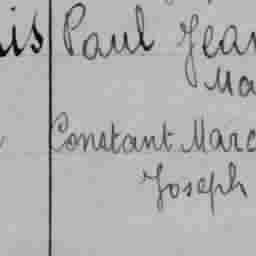 is Paul Jean
Ma
Constant Marc
Joseph